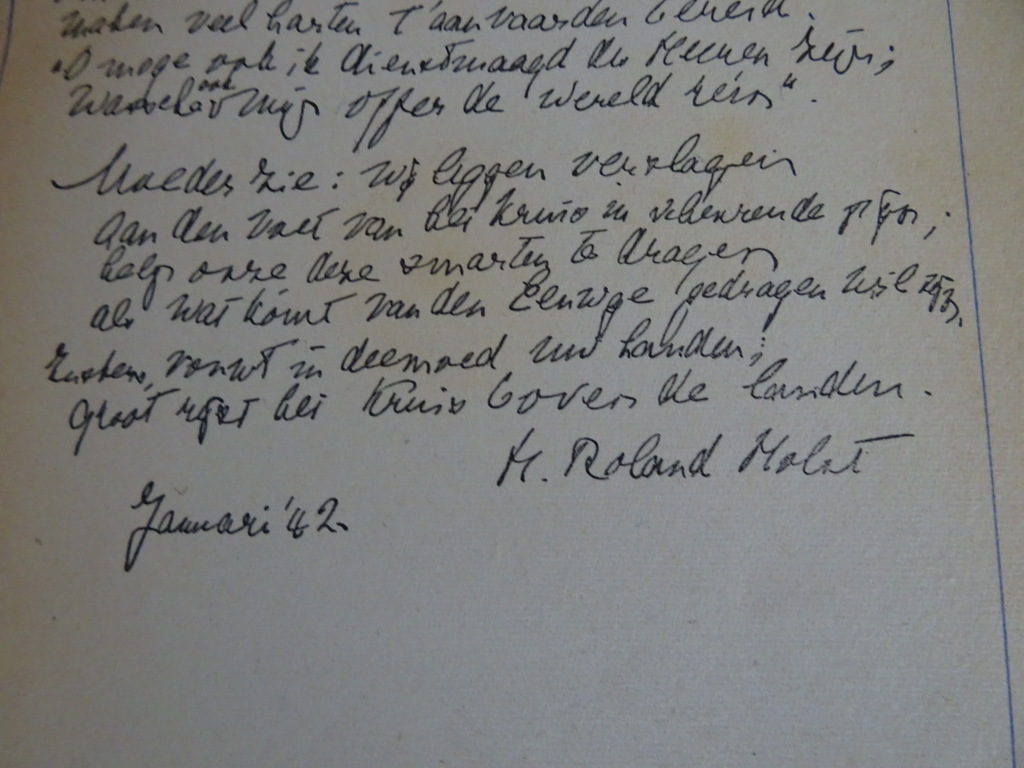 maken veel harten t' aanvaarden bereid.
"O moge ook ik dienstmaagd des Heeren zijn;
Wassche ook mijn offer de wereld rein".
Moeder zie: wij liggen verslagen
aan den voet van het Kruis in scheurende pijn;
help onze deze smarten te dragen
als wat komt van den Eeuwige gedragen wil zijn.
vouwt in deemoed uw handen;
groot rijst het Kruis boven de landen.
H. Roland Holst
Januari '42.